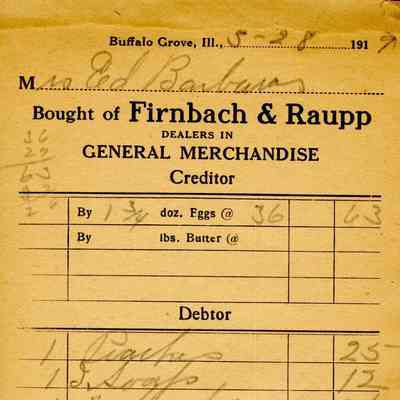 Buffalo Grove, Ill., 5-28 1917
Mrs Ed Barbaras
Bought of Firnbach & Raupp
DEALERS IN
GENERAL MERCHANDISE
Creditor
36
27
63
By 1 3/4 doz. Eggs @ 36 63
By lbs. Butter @
Debtor
1 Peaches 25
1 T. Soap 12